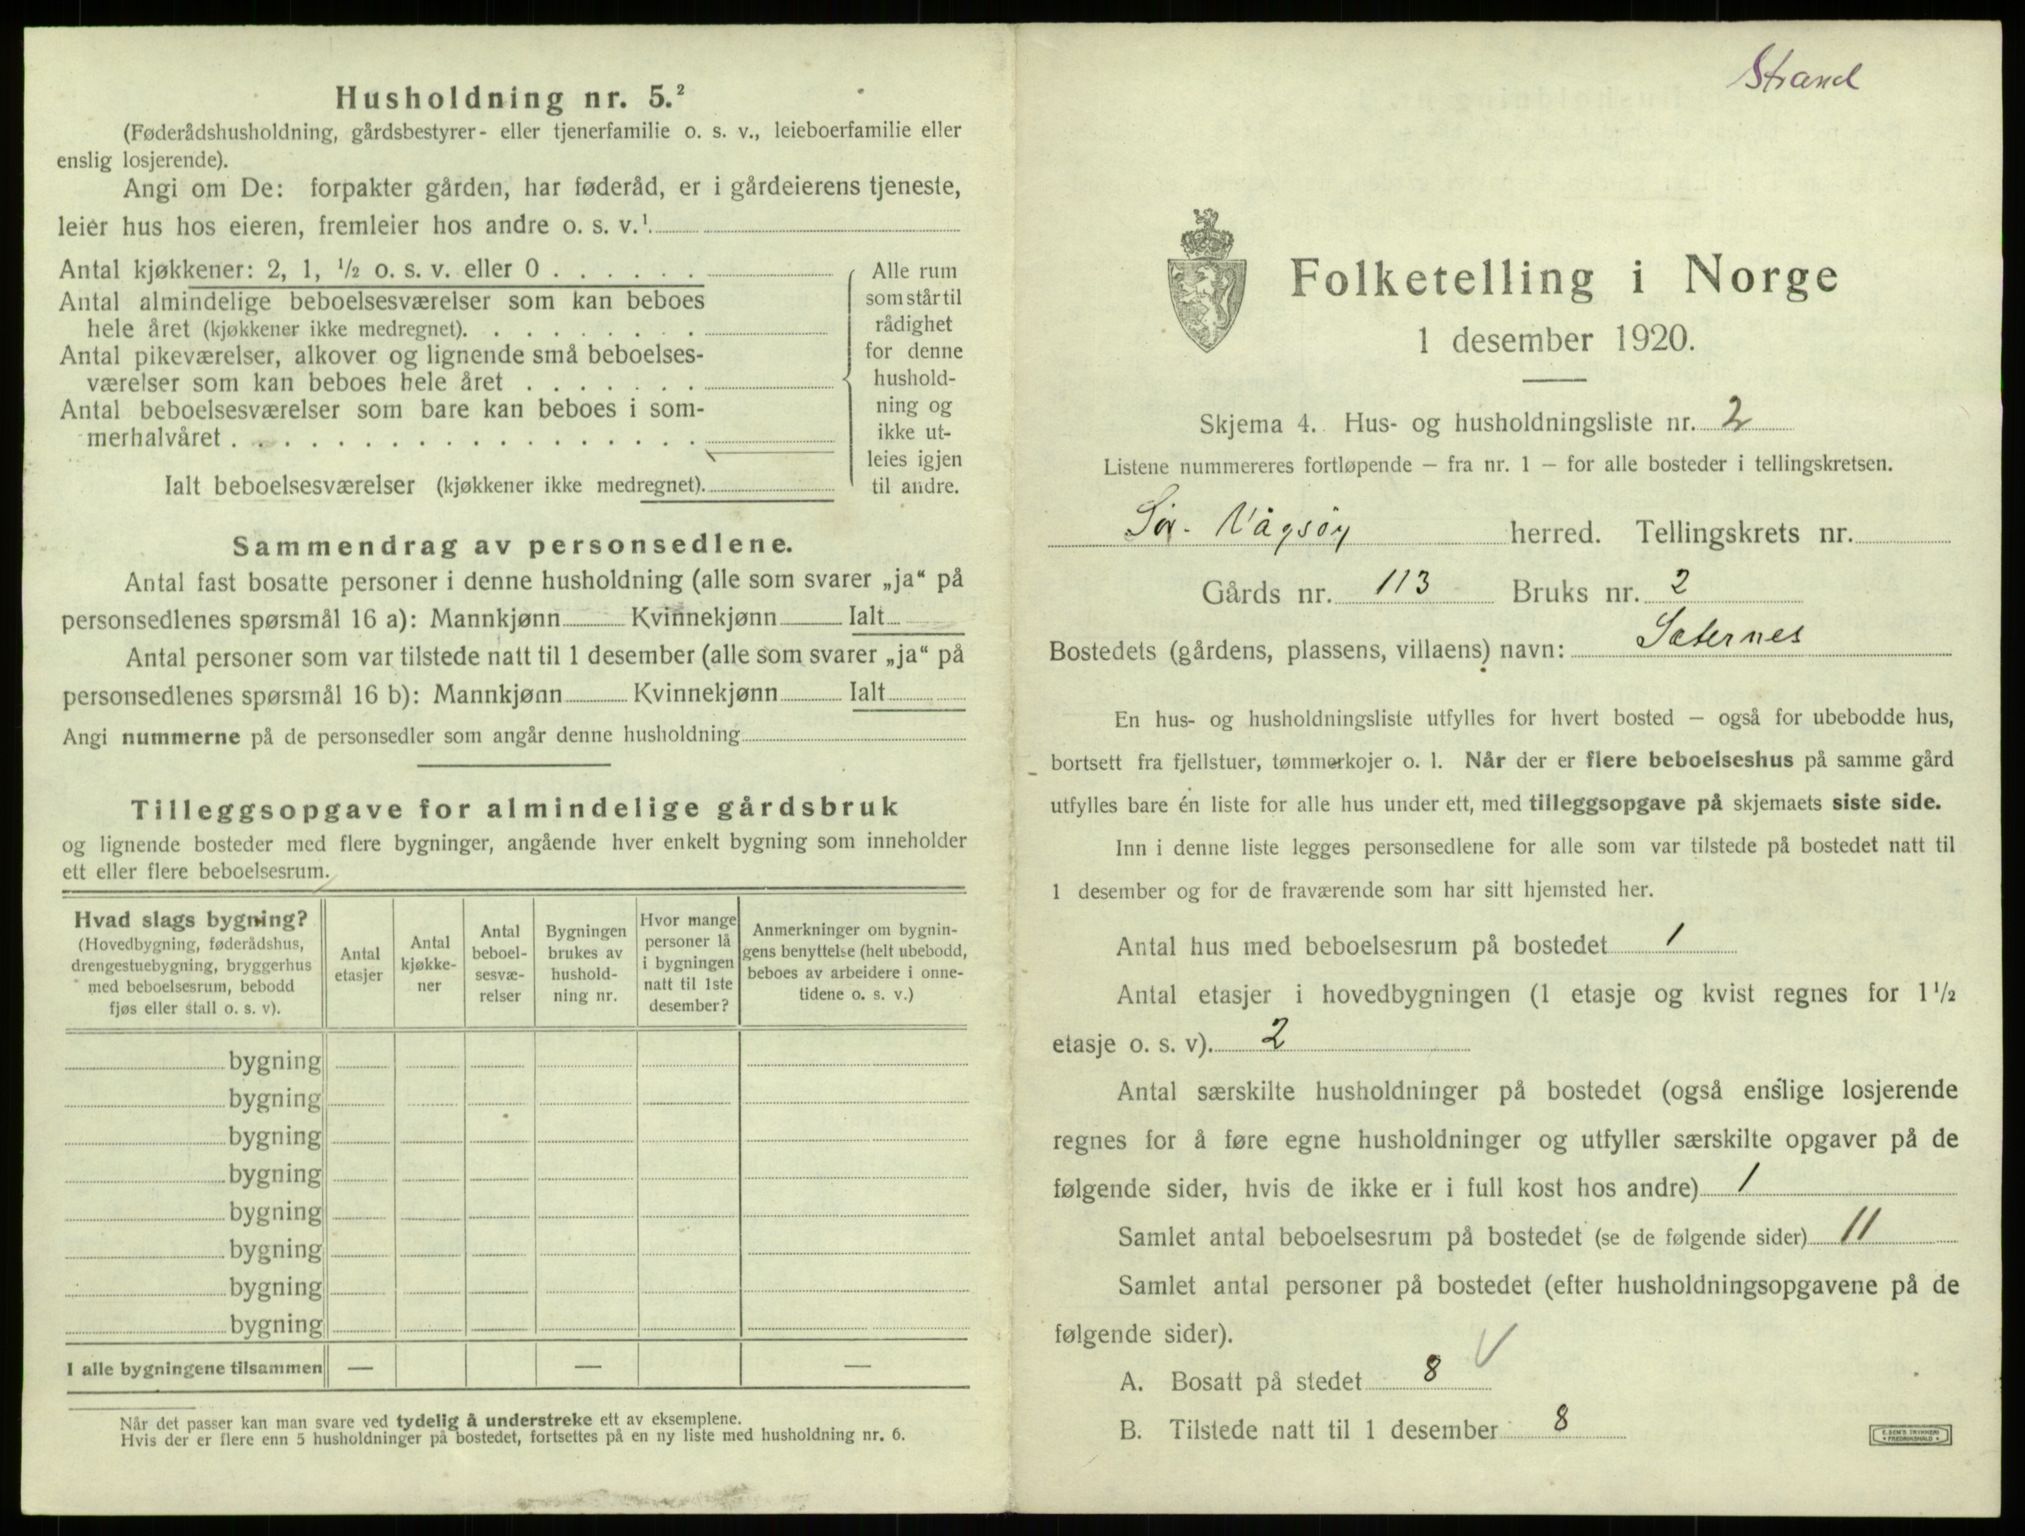 Husholdning nr. 5.²
(Føderådshusholdning, gårdsbestyrer- eller tjenerfamilie o. s. v., leieboerfamilie eller
enslig losjerende).
Angi om De: forpakter gården, har føderåd, er i gårdeierens tjeneste,
leier hus hos eieren, fremleier hos andre o. s. v.¹
Antal kjøkkener: 2, 1, ½ o. s. v. eller 0 . . . . . .
Antal almindelige beboelsesværelser som kan beboes
hele året (kjøkkener ikke medregnet). . . . . . . . .
Antal pikeværelser, alkover og lignende små beboelses-
værelser som kan beboes hele året . . . . . . .
Antal beboelsesværelser som bare kan beboes i som-
merhalvåret . . . . . . . . . . . . . . . . . .
Ialt beboelsesværelser (kjøkkener ikke medregnet).
Alle rum
som står til
rådighet
for denne
hushold-
ning og
ikke ut-
leies igjen
til andre.
Sammendrag av personsedlene.
Antal fast bosatte personer i denne husholdning (alle som svarer „ja“ på
personsedlenes spørsmål 16 a): Mannkjønn Kvinnekjønn Ialt
Antal personer som var tilstede natt til 1 desember (alle som svarer „ja“ på
personsedlenes spørsmål 16 b): Mannkjønn Kvinnekjønn Ialt
Angi nummerne på de personsedler som angår denne husholdning
Tilleggsopgave for almindelige gårdsbruk
og lignende bosteder med flere bygninger, angående hver enkelt bygning som inneholder
ett eller flere beboelsesrum.
Hvad slags bygning?
(Hovedbygning, føderådshus,
drengestuebygning, bryggerhus
med beboelsesrum, bebodd
fjøs eller stall o. s. v).
Antal
etasjer
Antal
kjøkke-
ner
Antal
beboel-
sesvæ-
relser
Bygningen
brukes av
hushold-
ning nr.
Hvor mange
personer lå
i bygningen
natt til 1ste
desember?
Anmerkninger om bygnin-
gens benyttelse (helt ubebodd,
beboes av arbeidere i onne-
tidene o. s. v.)
bygning
bygning
bygning
bygning
bygning
bygning
bygning
bygning
I alle bygningene tilsammen — — —
Når det passer kan man svare ved tydelig å understreke ett av eksemplene.
Hvis der er flere enn 5 husholdninger på bostedet, fortsettes på en ny liste med husholdning nr. 6.
Strand
Folketelling i Norge
1 desember 1920.
Skjema 4. Hus- og husholdningsliste nr. 2
Listene nummereres fortløpende – fra nr. 1 – for alle bosteder i tellingskretsen.
Sør-Vågsøy herred. Tellingskrets nr.
Gårds nr. 113 Bruks nr. 2
Bostedets (gårdens, plassens, villaens) navn: Sæternes
En hus- og husholdningsliste utfylles for hvert bosted – også for ubebodde hus,
bortsett fra fjellstuer, tømmerkojer o. l. Når der er flere beboelseshus på samme gård
utfylles bare én liste for alle hus under ett, med tilleggsopgave på skjemaets siste side.
Inn i denne liste legges personsedlene for alle som var tilstede på bostedet natt til
1 desember og for de fraværende som har sitt hjemsted her.
Antal hus med beboelsesrum på bostedet 1
Antal etasjer i hovedbygningen (1 etasje og kvist regnes for 1½
etasje o. s. v). 2
Antal særskilte husholdninger på bostedet (også enslige losjerende
regnes for å føre egne husholdninger og utfyller særskilte opgaver på de
følgende sider, hvis de ikke er i full kost hos andre) 1
Samlet antal beboelsesrum på bostedet (se de følgende sider) 11
Samlet antal personer på bostedet (efter husholdningsopgavene på de
følgende sider).
A. Bosatt på stedet 8 √
B. Tilstede natt til 1 desember 8
E. SEM'S TRYKKERI
FREDRIKSHALD